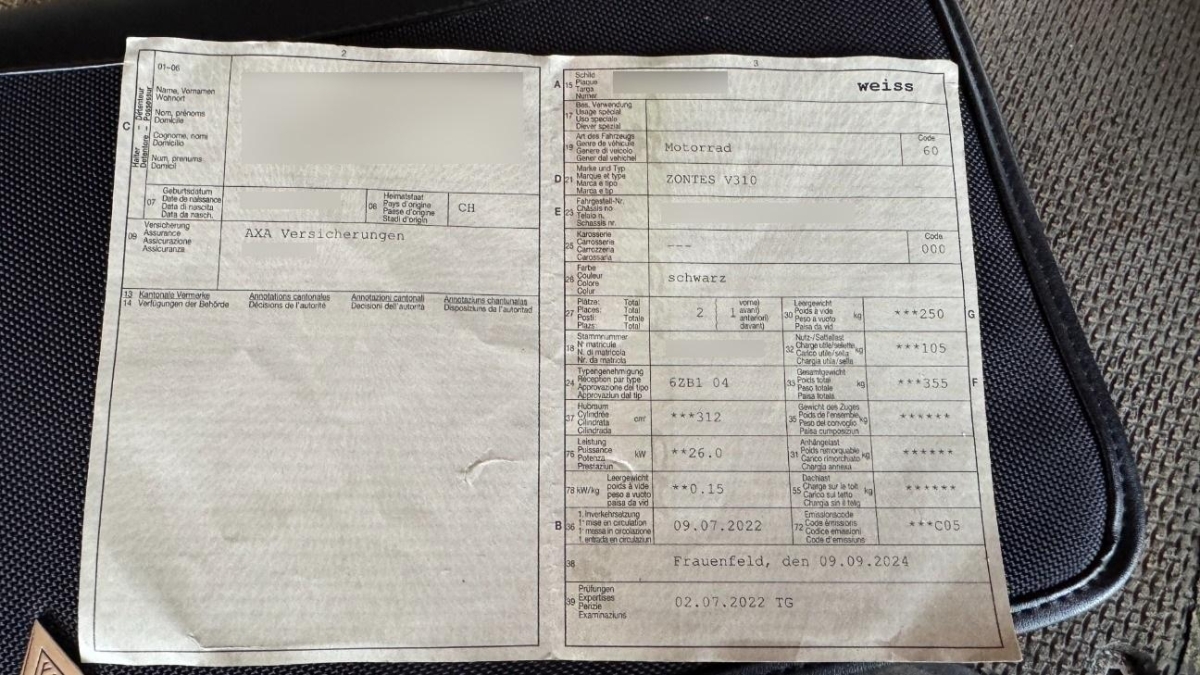 2
01-06
Name, Vornamen
Wohnort
Nom, prénoms
Domicile
Cognome, nomi
Domicilio
Num, prenums
Domicil
C
Halter - Détenteur
Detentore - Possessur
07
Geburtsdatum
Date de naissance
Data di nascita
Data da nasch.
08
Heimatstaat
Pays d'origine
Paese d'origine
Stadi d'origin
CH
09
Versicherung
Assurance
Assicurazione
Assicuranza
AXA Versicherungen
13 Kantonale Vermerke Annotations cantonales Annotazioni cantonali Annotaziuns chantunalas
14 Verfügungen der Behörde Décisions de l'autorité Decisioni dell'autorità Disposiziuns da l'autoritad
3
A
15
Schild
Plaque
Targa
Numer
weiss
17
Bes. Verwendung
Usage spécial
Uso speciale
Diever spezial
19
Art des Fahrzeugs
Genre de véhicule
Genere di veicolo
Gener dal vehichel
Motorrad
Code
60
D
21
Marke und Typ
Marque et type
Marca e tipo
Marca e tip
ZONTES V310
E
23
Fahrgestell-Nr.
Châssis no
Telaio n.
Schassis nr.
25
Karosserie
Carrosserie
Carrozzeria
Carossaria
---
Code
000
26
Farbe
Couleur
Colore
Colur
schwarz
27
Plätze: Total
Places: Total
Posti: Totale
Plazs: Total
2
1
vorne)
avant)
anteriori)
davant)
30
Leergewicht
Poids à vide
Peso a vuoto
Paisa da vid
kg
***250
G
18
Stammnummer
N° matricule
N. di matricola
Nr. da matricla
32
Nutz-/Sattellast
Charge utile/sellette
Carico utile/sella
Chargia utila/sella
kg
***105
24
Typengenehmigung
Réception par type
Approvazione del tipo
Approvaziun dal tip
6ZB1 04
33
Gesamtgewicht
Poids total
Peso totale
Paisa totala
kg
***355
F
37
Hubraum
Cylindrée
Cilindrata
Cilindrada
cm³
***312
35
Gewicht des Zuges
Poids de l'ensemble
Peso del convoglio
Paisa cumposiziun
kg
******
76
Leistung
Puissance
Potenza
Prestaziun
kW
**26.0
31
Anhängelast
Poids remorquable
Carico rimorchiato
Chargia annexa
kg
******
78 kW/kg
Leergewicht
poids à vide
peso a vuoto
paisa da vid
**0.15
55
Dachlast
Charge sur le toit
Carico sul tetto
Chargia sin il tetg
kg
******
B
36
1. Inverkehrsetzung
1re mise en circulation
1a messa in circolazione
1. entrada en circulaziun
09.07.2022
72
Emissionscode
Code émissions
Codice emissioni
Code d'emissiuns
***C05
38
Frauenfeld, den 09.09.2024
39
Prüfungen
Expertises
Perizie
Examinaziuns
02.07.2022 TG